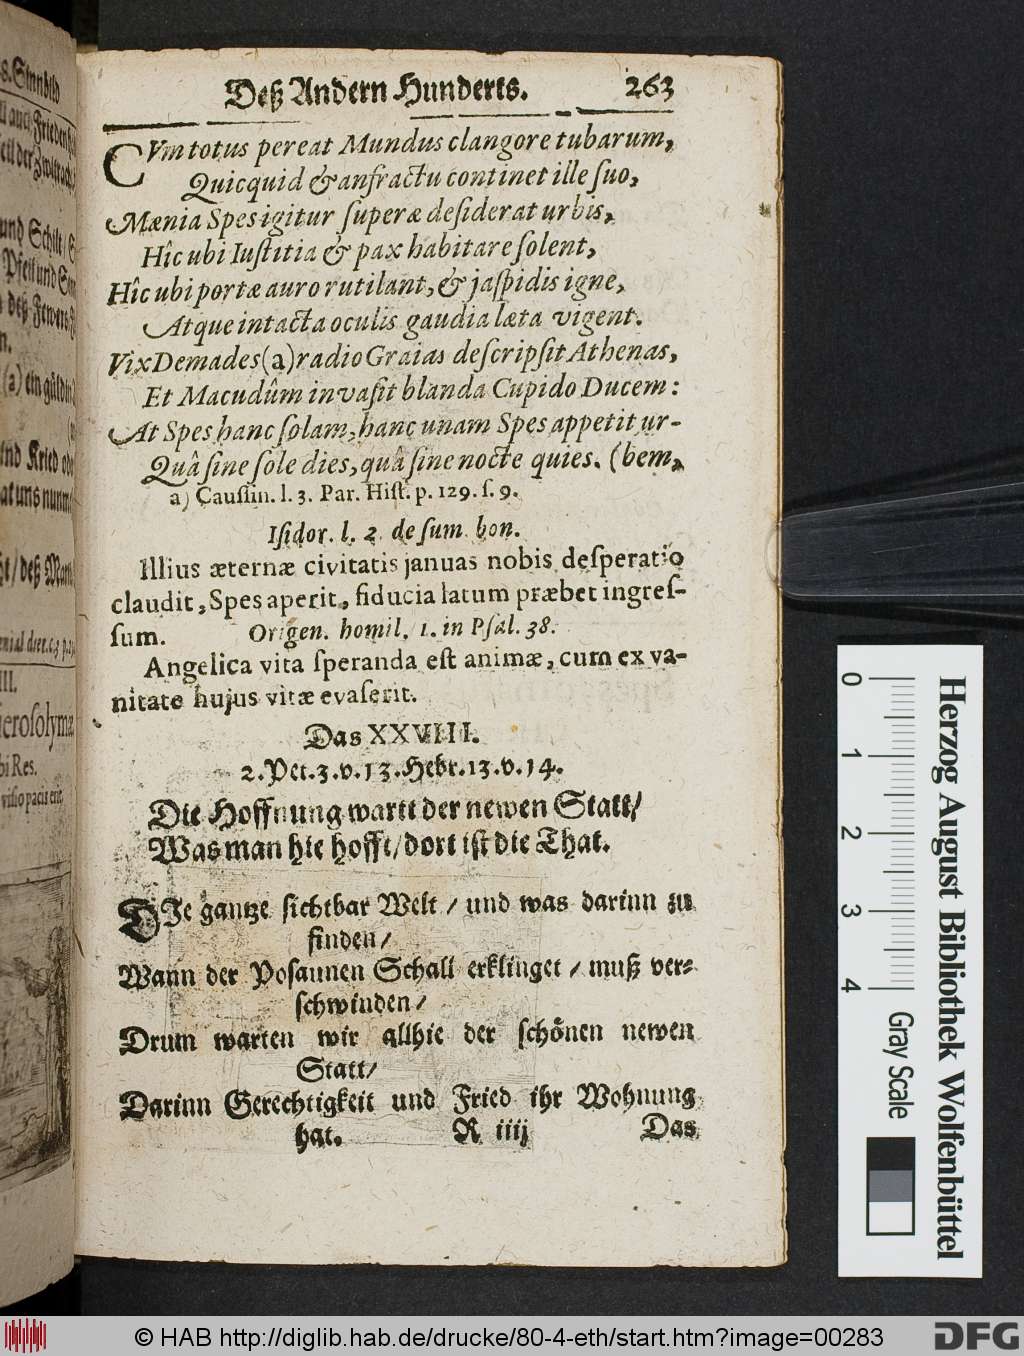 Deß Andern Hunderts. 263
CVm totus pereat Mundus clangore tubarum,
Quicquid & anfractu continet ille suo,
Mænia Spes igitur superæ desiderat urbis,
Hîc ubi Iustitia & pax habitare solent,
Hîc ubi portæ auro rutilant, & jaspidis igne,
Atque intacta oculis gaudia læta vigent.
Vix Demades (a) radio Graias descripsit Athenas,
Et Macudûm invasit blanda Cupido Ducem:
At Spes hanc solam, hanc unam Spes appetit ur-
Quâ sine sole dies, quâ sine nocte quies. (bem,
a) Caussin. l. 3. Par. Hist. p. 129. s. 9.
Isidor. l. 2. de sum. bon.
Illius æternæ civitatis januas nobis desperatio
claudit, Spes aperit, fiducia latum præbet ingres-
sum. Origen. homil. 1. in Psal. 38.
Angelica vita speranda est animæ, cum ex va-
nitate hujus vitæ evaserit.
Das XXVIII.
2. Pet. 3. v. 13. Hebr. 13. v. 14.
Die Hoffnung wartt der newen Statt/
Was man hie hofft/ dort ist die That.
DIe gantze sichtbar Welt / und was darinn zu
finden/
Wann der Posaunen Schall erklinget / muß ver-
schwinden/
Drum warten wir allhie der schönen newen
Statt/
Darinn Gerechtigkeit und Fried ihr Wohnung
hat. R iiij Das
s. Sinnbild
und Schilt/
Pfeil und
(a) ein güldin
und Kried
/ deß
III.
ierosolymæ
bi Res.
visio pacis erit.
0 1 2 3 4
Gray Scale
Herzog August Bibliothek Wolfenbüttel
© HAB http://diglib.hab.de/drucke/80-4-eth/start.htm?image=00283
DFG